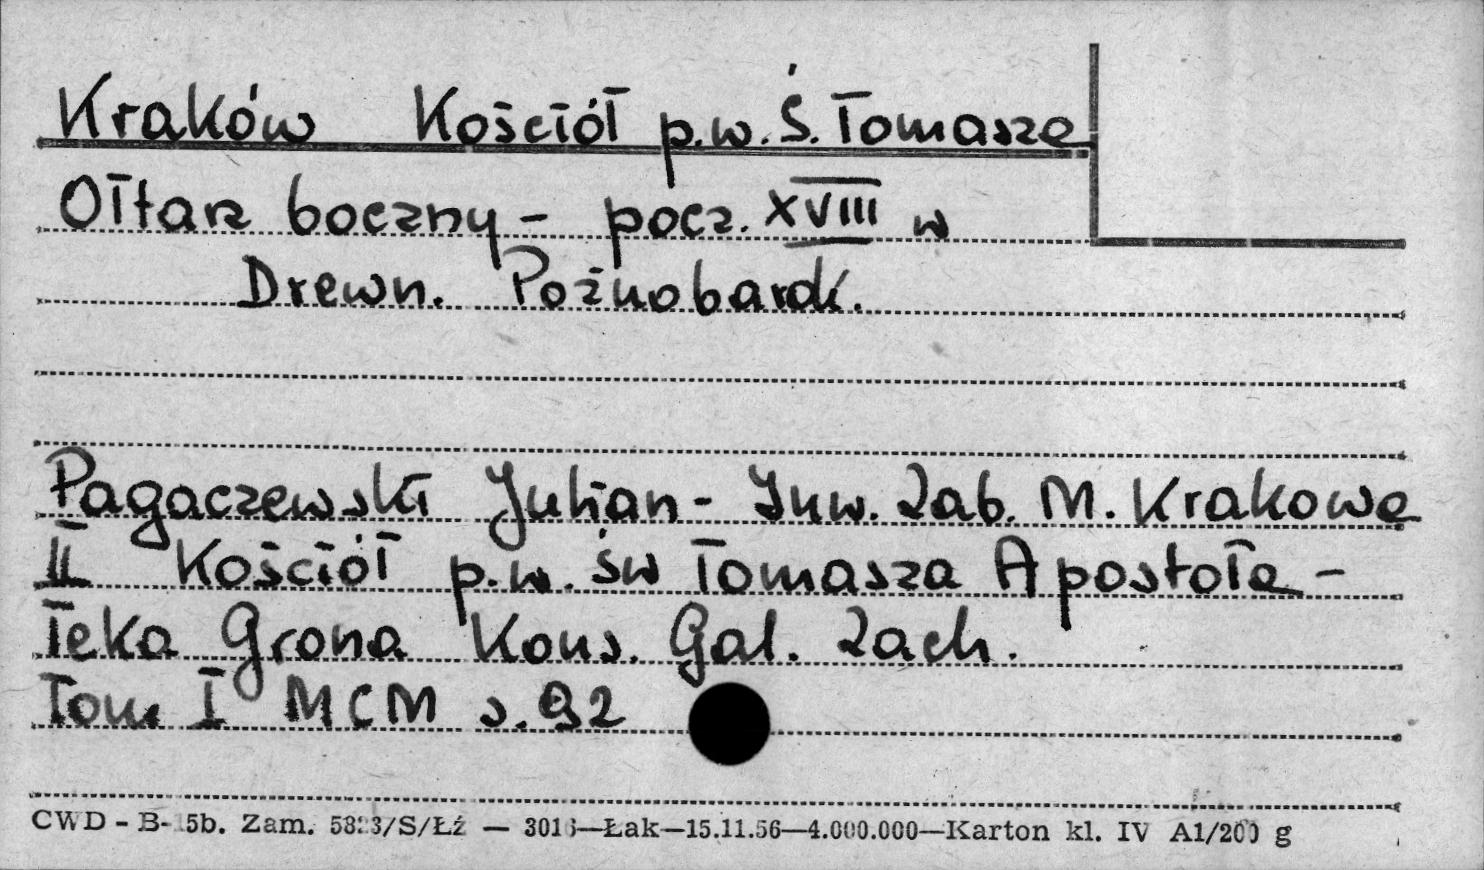 Kraków Kościół p.w. Ś. Tomasza
Ołtarz boczny - pocz. XVIII w
Drewn. Poźnobarok.
Pagaczewski Julian - Inw. Zab. M. Krakowa
II Kościół p.w. św Tomasza Apostoła -
Teka Grona Kons. Gal. Zach.
Tom I MCM s. 92
CWD - B- 5b. Zam. /S/Łź — —Łak—15.11.56—4.000.000—Karton kl. IV A1/200 g